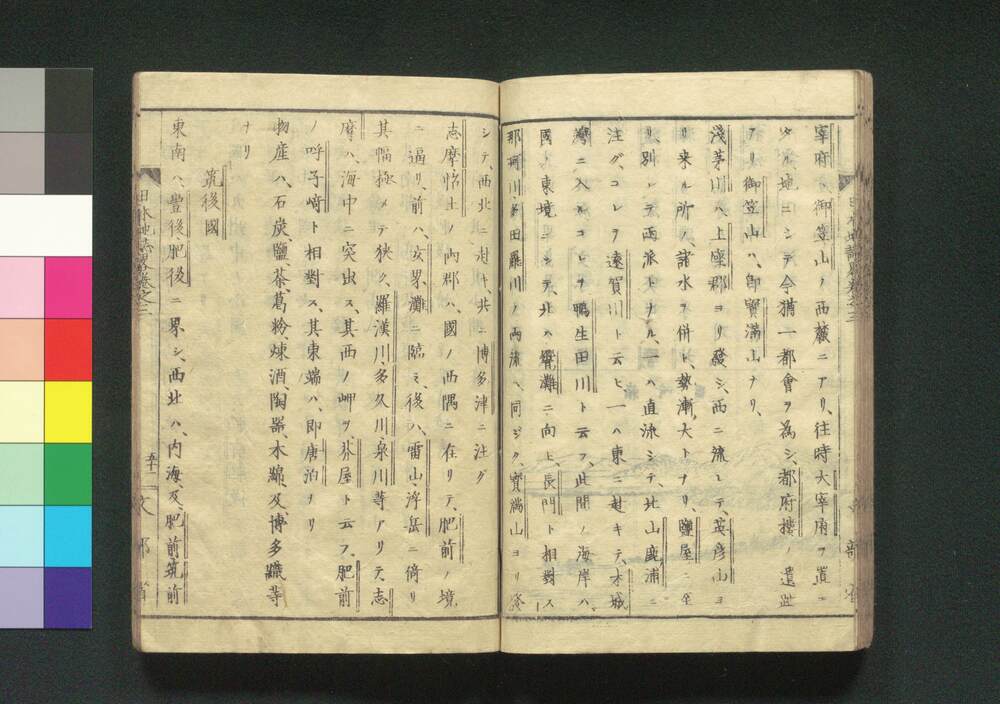 宰府ハ、御笠山ノ西麓ニアリ、往時大宰府ヲ置キ
タル地ニシテ今猶一都會ヲ為シ、都府樓ノ遺趾
アリ御笠山ハ、即寶滿山ナリ、
淺茅川ハ、上座郡ヨリ發シ、西ニ流レテ、英彦山ヨ
リ來ル所ノ、諸水ヲ併セ、勢漸ク大トナリ、
リ、別レテ両派トナル、一ハ直流シテ、北山鹿浦ニ
注グ、コレヲ遠賀川ト云ヒ、一ハ東ニ赴キテ、木城
灣ニ入ルコレヲ鴨生田川ト云フ、此間ノ海岸ハ、
國ト東境ニシテ、北ハ響灘ニ向ヒ、長門ト相對ス
那珂川、多田羅川ノ両流ハ、同ジク、寶滿山ヨリ發
シテ、西北ニ赴キ、共ニ博多津ニ注グ
志摩怡土ノ两郡ハ、國ノ西隅ニ在リテ、肥前ノ境
ニ逼リ、前ハ、玄界灘ニ臨ミ、後ハ、雷山、浮岳ニ倚リ
其幅極メテ狹ク、羅漢川、多久川、泉川等アリテ、志
摩ハ、海中ニ突出ス、其西ノ岬ヲ、芥屋ト云フ、肥前
ノ呼子﨑ト相對ス、其東端ハ、即唐泊ナリ
物産ハ、石炭、鹽、茶、葛粉、煉酒、陶器、木綿、及、博多織等
ナリ
筑後國
東南ハ、豐後肥後ニ界シ、西北ハ、内海、及、肥前筑前
日本地誌略卷之三
五十二
文部省